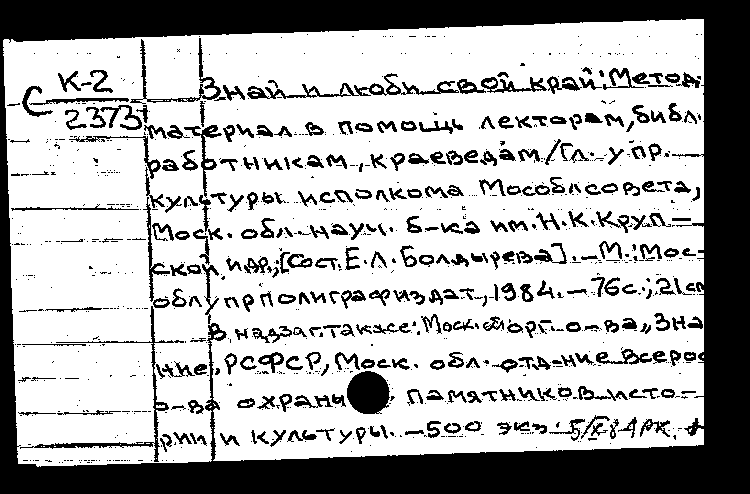 С К-2
2373
Знай и люби свой край: Метод.
материал в помощь лекторам, библ.
работникам, краеведам/Гл. упр.
культуры исполкома Мособлсовета,
Моск. обл. науч. б-ка им. Н. К. Круп-
ской и др.; [Сост. Е. Л. Болдырева]. – М.: Мос-
облупрполиграфиздат, 1984. – 76 с.; 21 см
В надзаг. также: Моск. орг. о-ва „Зна
ние„ РСФСР, Моск. обл. отд-ние Всерос
о-ва охраны памятников исто-
рии и культуры. – 500 экз.